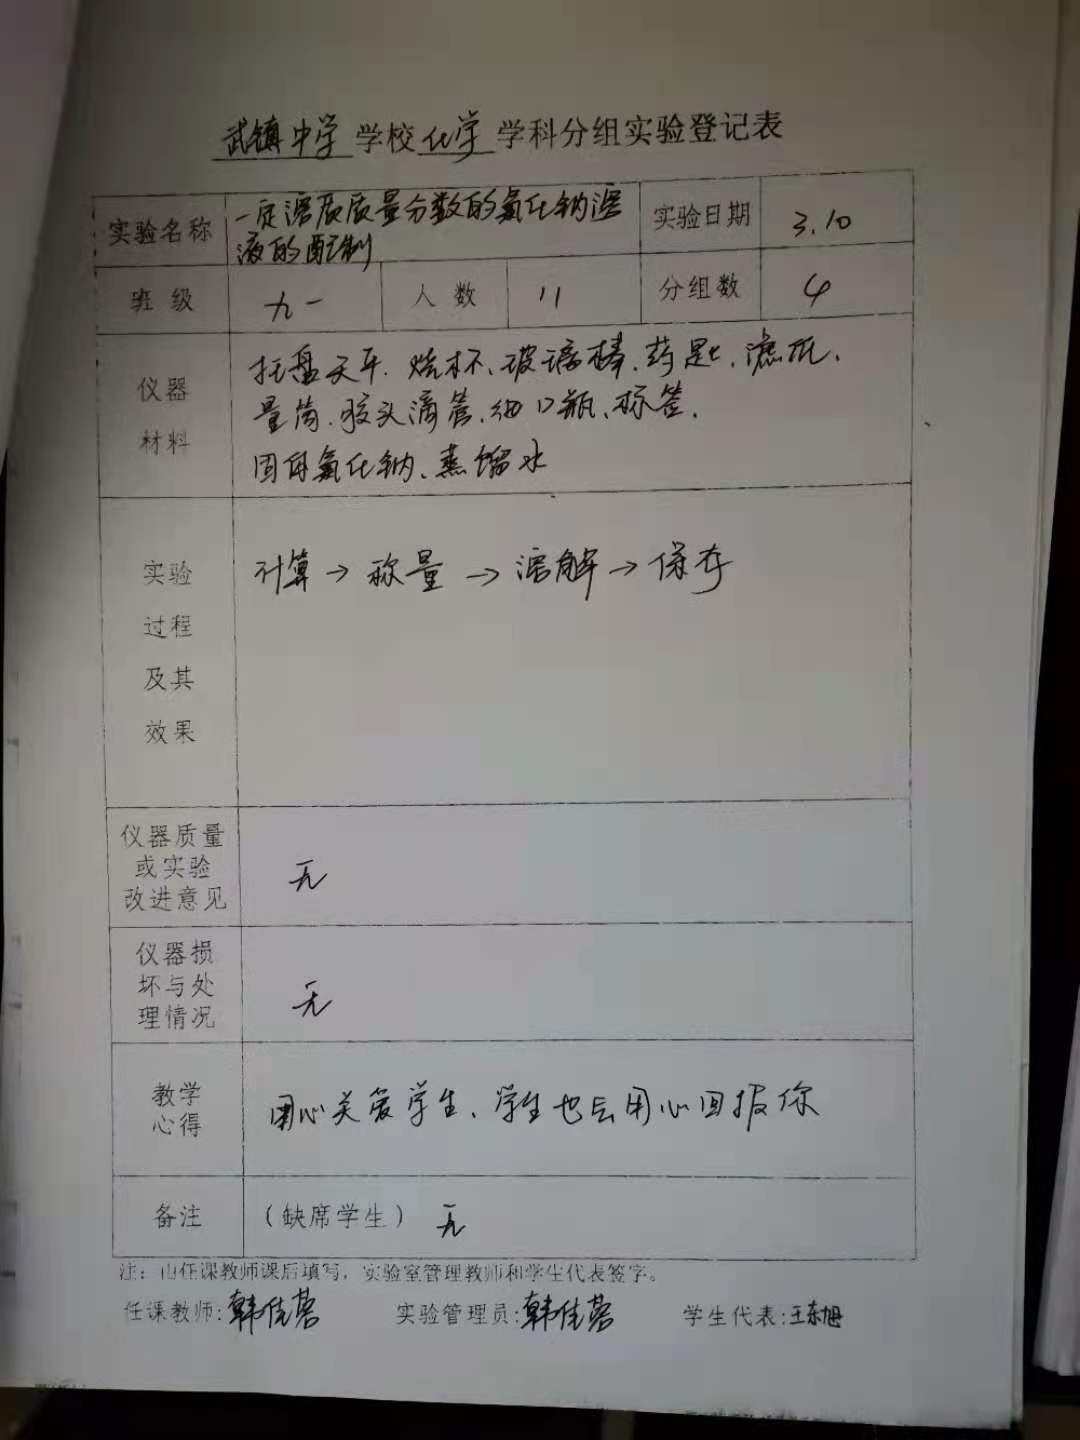 武镇中学 学校 化学 学科分组实验登记表
实验名称 一定溶质质量分数的氯化钠溶液的配制 实验日期 3.10
班级 九一 人数 11 分组数 4
仪器材料
托盘天平、烧杯、玻璃棒、药匙、滤纸、
量筒、胶头滴管、细口瓶、标签、
固体氯化钠、蒸馏水
实验
过程
及其
效果
计算→称量→溶解→保存
仪器质量
或实验
改进意见
无
仪器损
坏与处
理情况
无
教学
心得
用心关爱学生、学生也会用心回报你
备注 (缺席学生) 无
注：由任课教师课后填写，实验室管理教师和学生代表签字。
任课教师:韩佳蓉 实验管理员:韩佳蓉 学生代表:王东旭